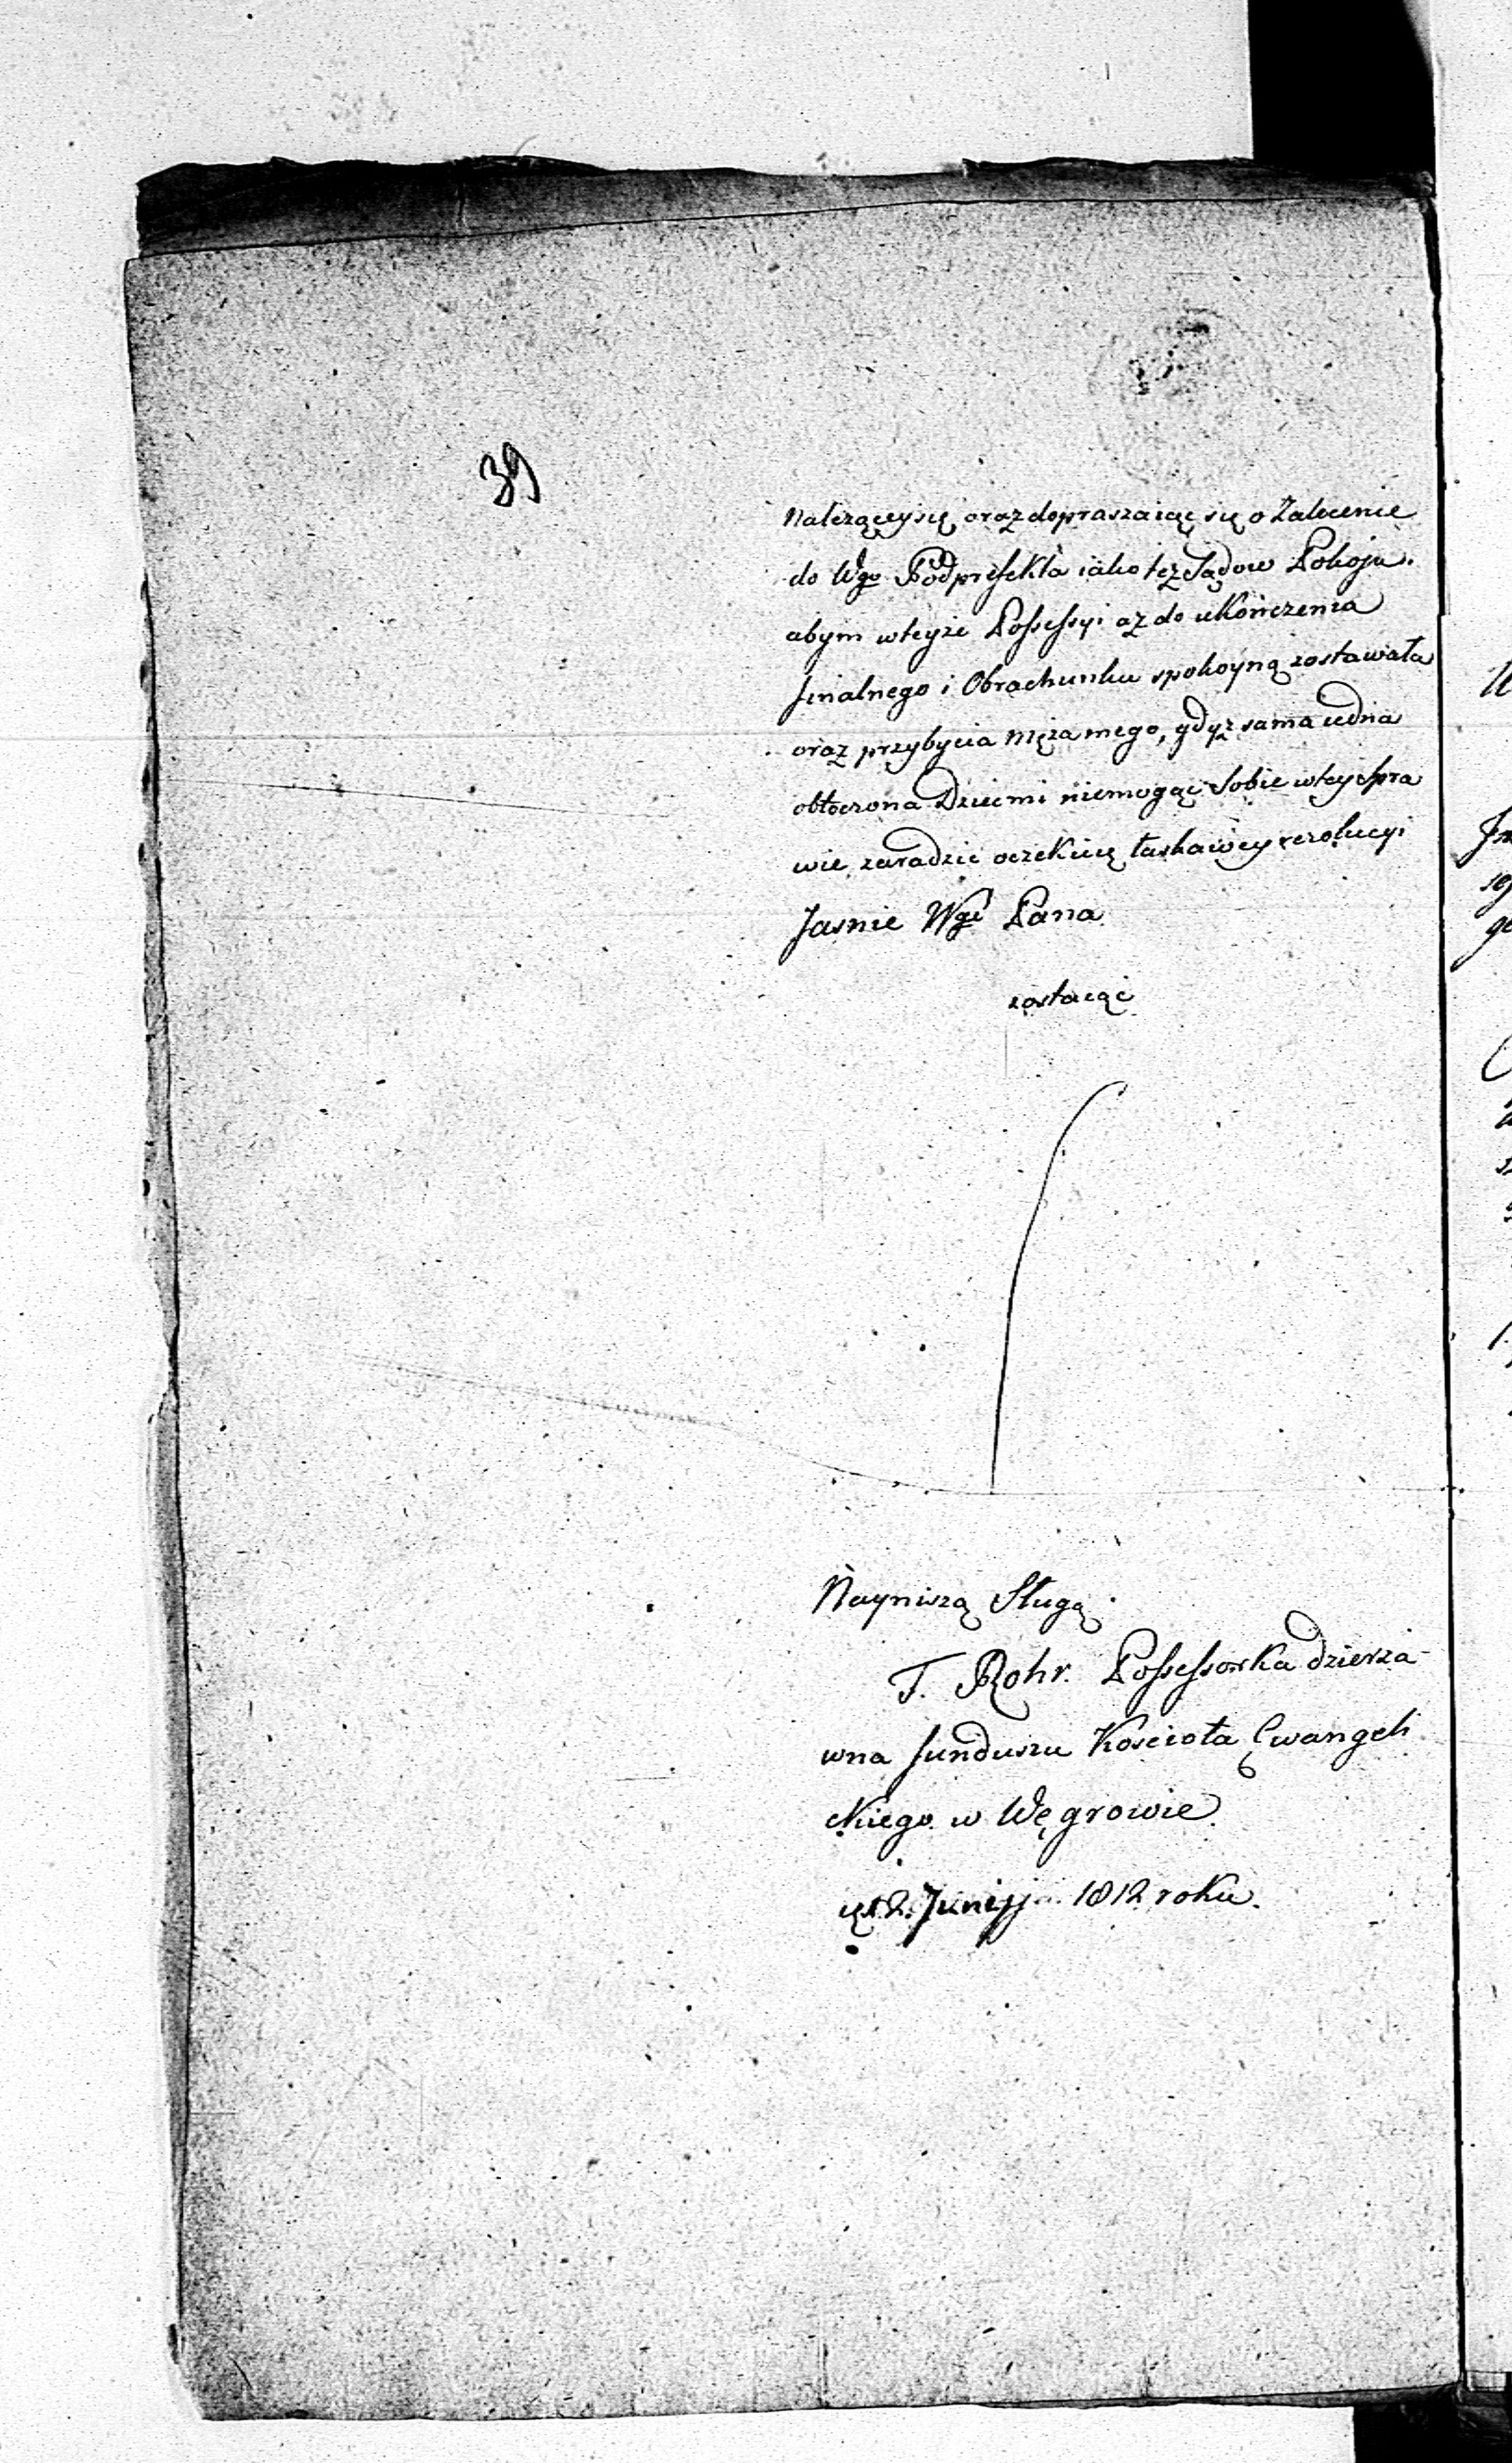 39
Należącey się, oraz dopraszaiąc się o Zalecenie
do Wgo Podprefekta iako też Sądow Pokoju.
abym wteyże Possessyi aż do ukończenia
finalnego i Obrachunku spokoyną zostawała
oraz przybycia Męża mego, gdyż sama iedna
obtoczona Dziećmi niemogąc Sobie wtey Spra
wie zaradzić oczekuię łaskawey rezolucyi
Jasnie Wgo Pana
zostaiąc
Nayniszą Sługą.
F. Rohr. Possessorka dzierża-
wna funduszu Kościoła Ewangeli
ckiego w Węgrowie.
12. Junij 1812 roku.